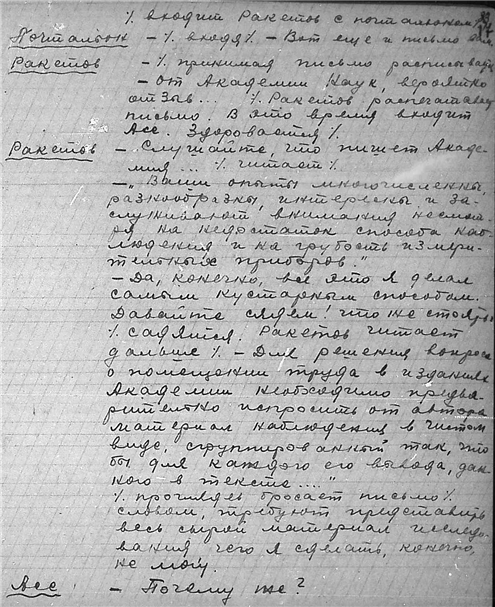 % входит Ракетов с почтальоном %
Почтальон - % входя % - Вот еще и письмо вам
Ракетов - % принимая письмо расписывается
- от Академии Наук, вероятно
отзыв... % Ракетов распечатывает
письмо. В это время входит
Асс. Здоровается %
Ракетов - Слушайте, что пишет Акаде-
мия ... % читает %
- „Ваши опыты многочисленны,
разнообразны, интересны и за-
служивают внимания несмот-
ря на недостаток способа наб-
людения и на грубость измери-
тельных приборов."
- Да, конечно, всё это я делал
самым кустарным способом.
Давайте сядем! что же стоять
% садятся. Ракетов читает
дальше % - Для решения вопроса
о помещении труда в изданиях
Академии необходимо предва-
рительно испросить от автора
материал наблюдения в чистом
виде, сгруппированный так, что
бы для каждого его вывода, дан-
ного в тексте ...."
% проглядев бросает письмо %
словом, требуют представить
весь сырой материал исследо-
вания чего я сделать, конечно,
не могу.
Асс. - Почему же?